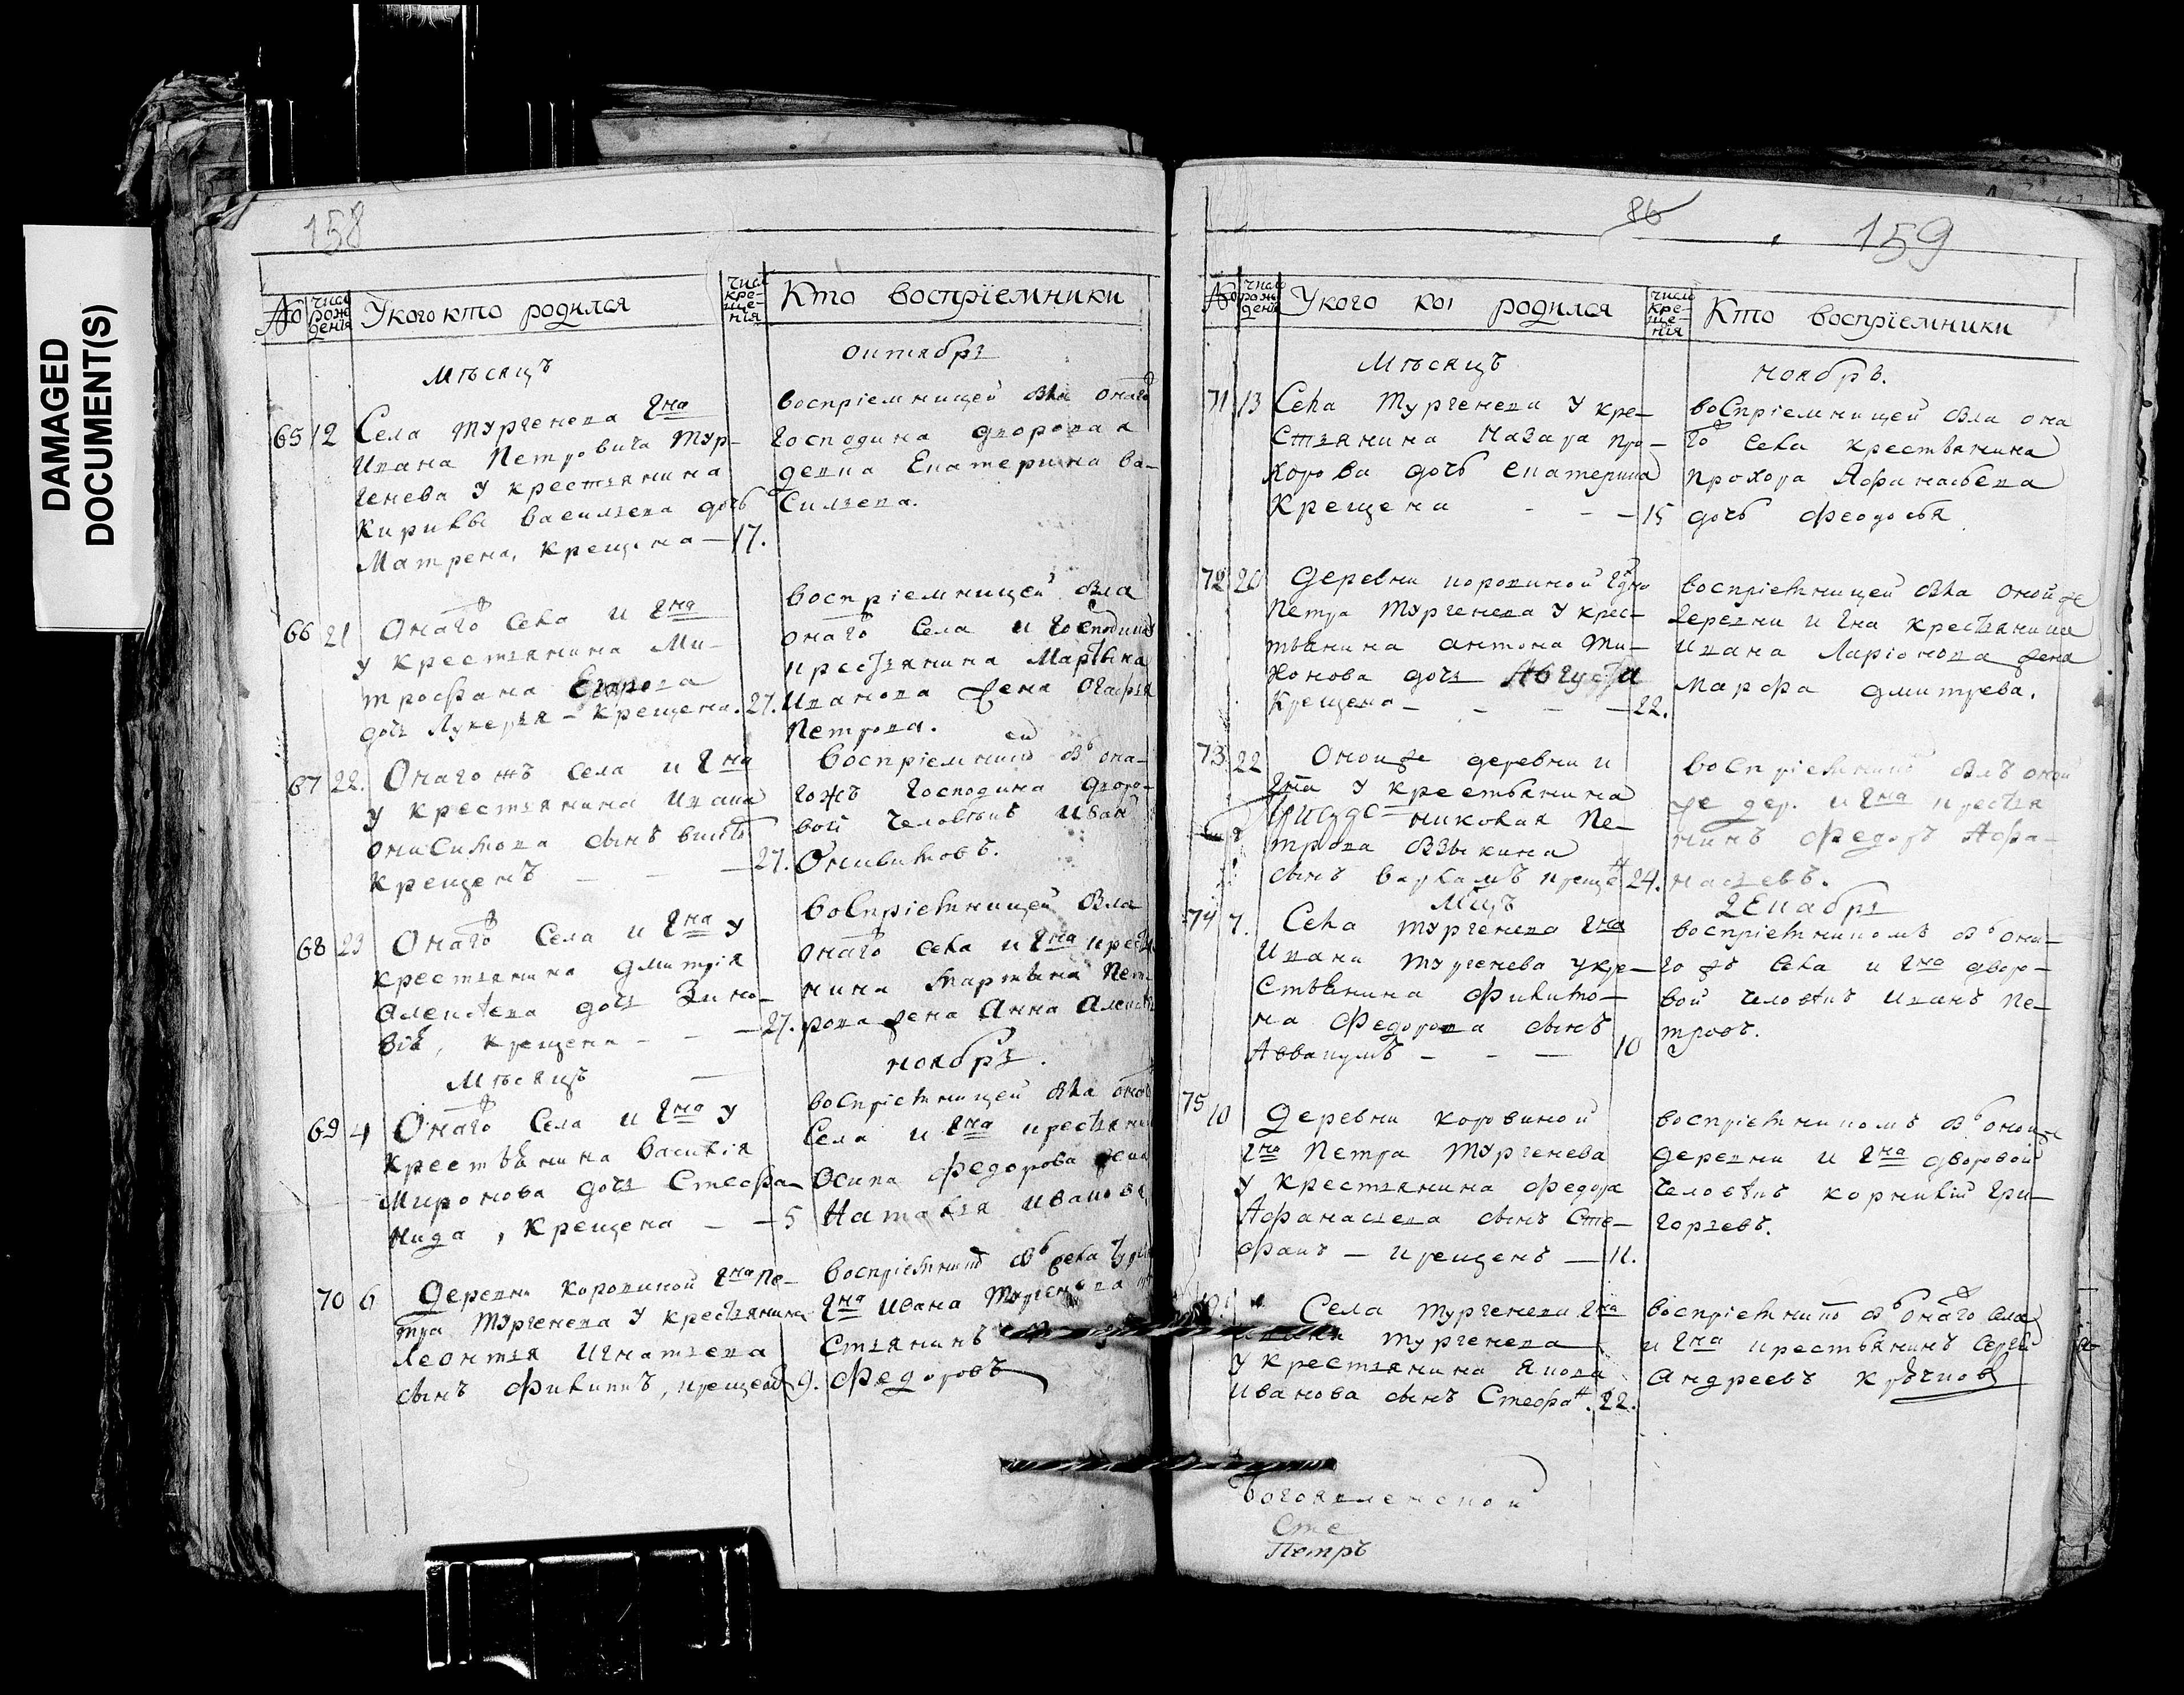 DAMAGED
DOCUMENT(S)
158
№
числ рож дения
У кого кто родился
числ кре-ще-ния
Кто воспрїемники
Мѣсяцъ
октябрь
65 12
Села Тургенева Гна
Ивана Петровича Тур-
генева у крестьянина
Кирилы Васильева дочь
Матрена, крещена — 17.
воспрїемницей была онаго
господина дворовая
девка Екатерина Ва-
сильева.
66 21
Онаго села и Гна
у крестьянина Ми-
трофана Егорова
дочь Лукерья — крещена. 27.
воспрїемницей была
онаго села и господина
крестьянина Мартына
Иванова жена
Петрова.
67 22.
Онагожъ села и Гна
у крестьянина Ивана
Онисимова сынъ
крещенъ — — — 27.
воспрїемник б. она-
гожъ господина дворо-
вой человѣкъ Иван
68 23
Онаго села и Гна у
крестьянина Дмитрїя
Алексѣева дочь Зино-
вїя, крещена — — 27.
воспрїемницей была
онаго села и Гна крестья
нина Мартына Пет-
рова жена Анна Алексѣ
Мѣсяцъ
ноябрь.
69 4
Онаго села и Гна у
крестьянина Василїя
Миронова дочь Стефа-
нида, крещена — — 5
воспрїемницей была онаго
села и Гна крестьяни
Осипа Федорова жена
Наталья Иванова
70 6
Деревни Коровиной Гна Пе-
тра Тургенева у крестьянина
Леонтья Игнатьева
сынъ Филиппъ, крещенъ 9.
воспрїемник б. села
Гна Ивана Тургенева
стьянинъ
Федоровъ
86
159
№
числ рож дения
У кого кто родился
числ кре-ще-ния
Кто воспрїемники
Мѣсяцъ
ноябрь.
71 13
Села Тургенева у кре-
стьянина Назара Про-
хорова дочь Екатерина
крещена — — — 15
воспрїемницей была она
го села крестьянина
Прохора Афанасьева
дочь Феодосья
72 20
Деревни Коровиной Гдна
Петра Тургенева у крес-
тьянина Антона Ти-
хонова дочь Августа
крещена — — — — 22.
воспрїемницей была онойже
деревни и Гна крестьянина
Ивана Ларїонова жена
Марфа Дмитрева.
73 22
Онойже деревни и
Гна у крестьянина
никовая Пе-
трова
сынъ Варламъ креще 24.
воспрїемник былъ оной
же дер. и Гна крестья
нинъ Федоръ Афа-
насьевъ.
Мцъ
Декабрь
74 7.
Села Тургенева Гна
Ивана Тургенева у кре-
стьянина Филимо-
на Федорова сынъ
Аввакумъ — — — 10
воспрїемникомъ б. она-
го жъ села и Гна дворо-
вой человѣкъ Иванъ Пе-
тровъ.
75 10
Деревни Коровиной
Гна Петра Тургенева
у крестьянина Федора
Афанасьева сынъ Сте-
фанъ — крещенъ — 11.
воспрїемникомъ б. онойже
деревни и Гна дворовой
человѣкъ Корнилїй Гри-
горьевъ.
Села Тургенева Гна
Тургенева
у крестьянина Якова
Иванова сынъ Стефан. 22.
воспрїемник б. онаго села
и Гна крестьянинъ Сергѣй
Андреевъ
Богоявленской
Сте
Петръ